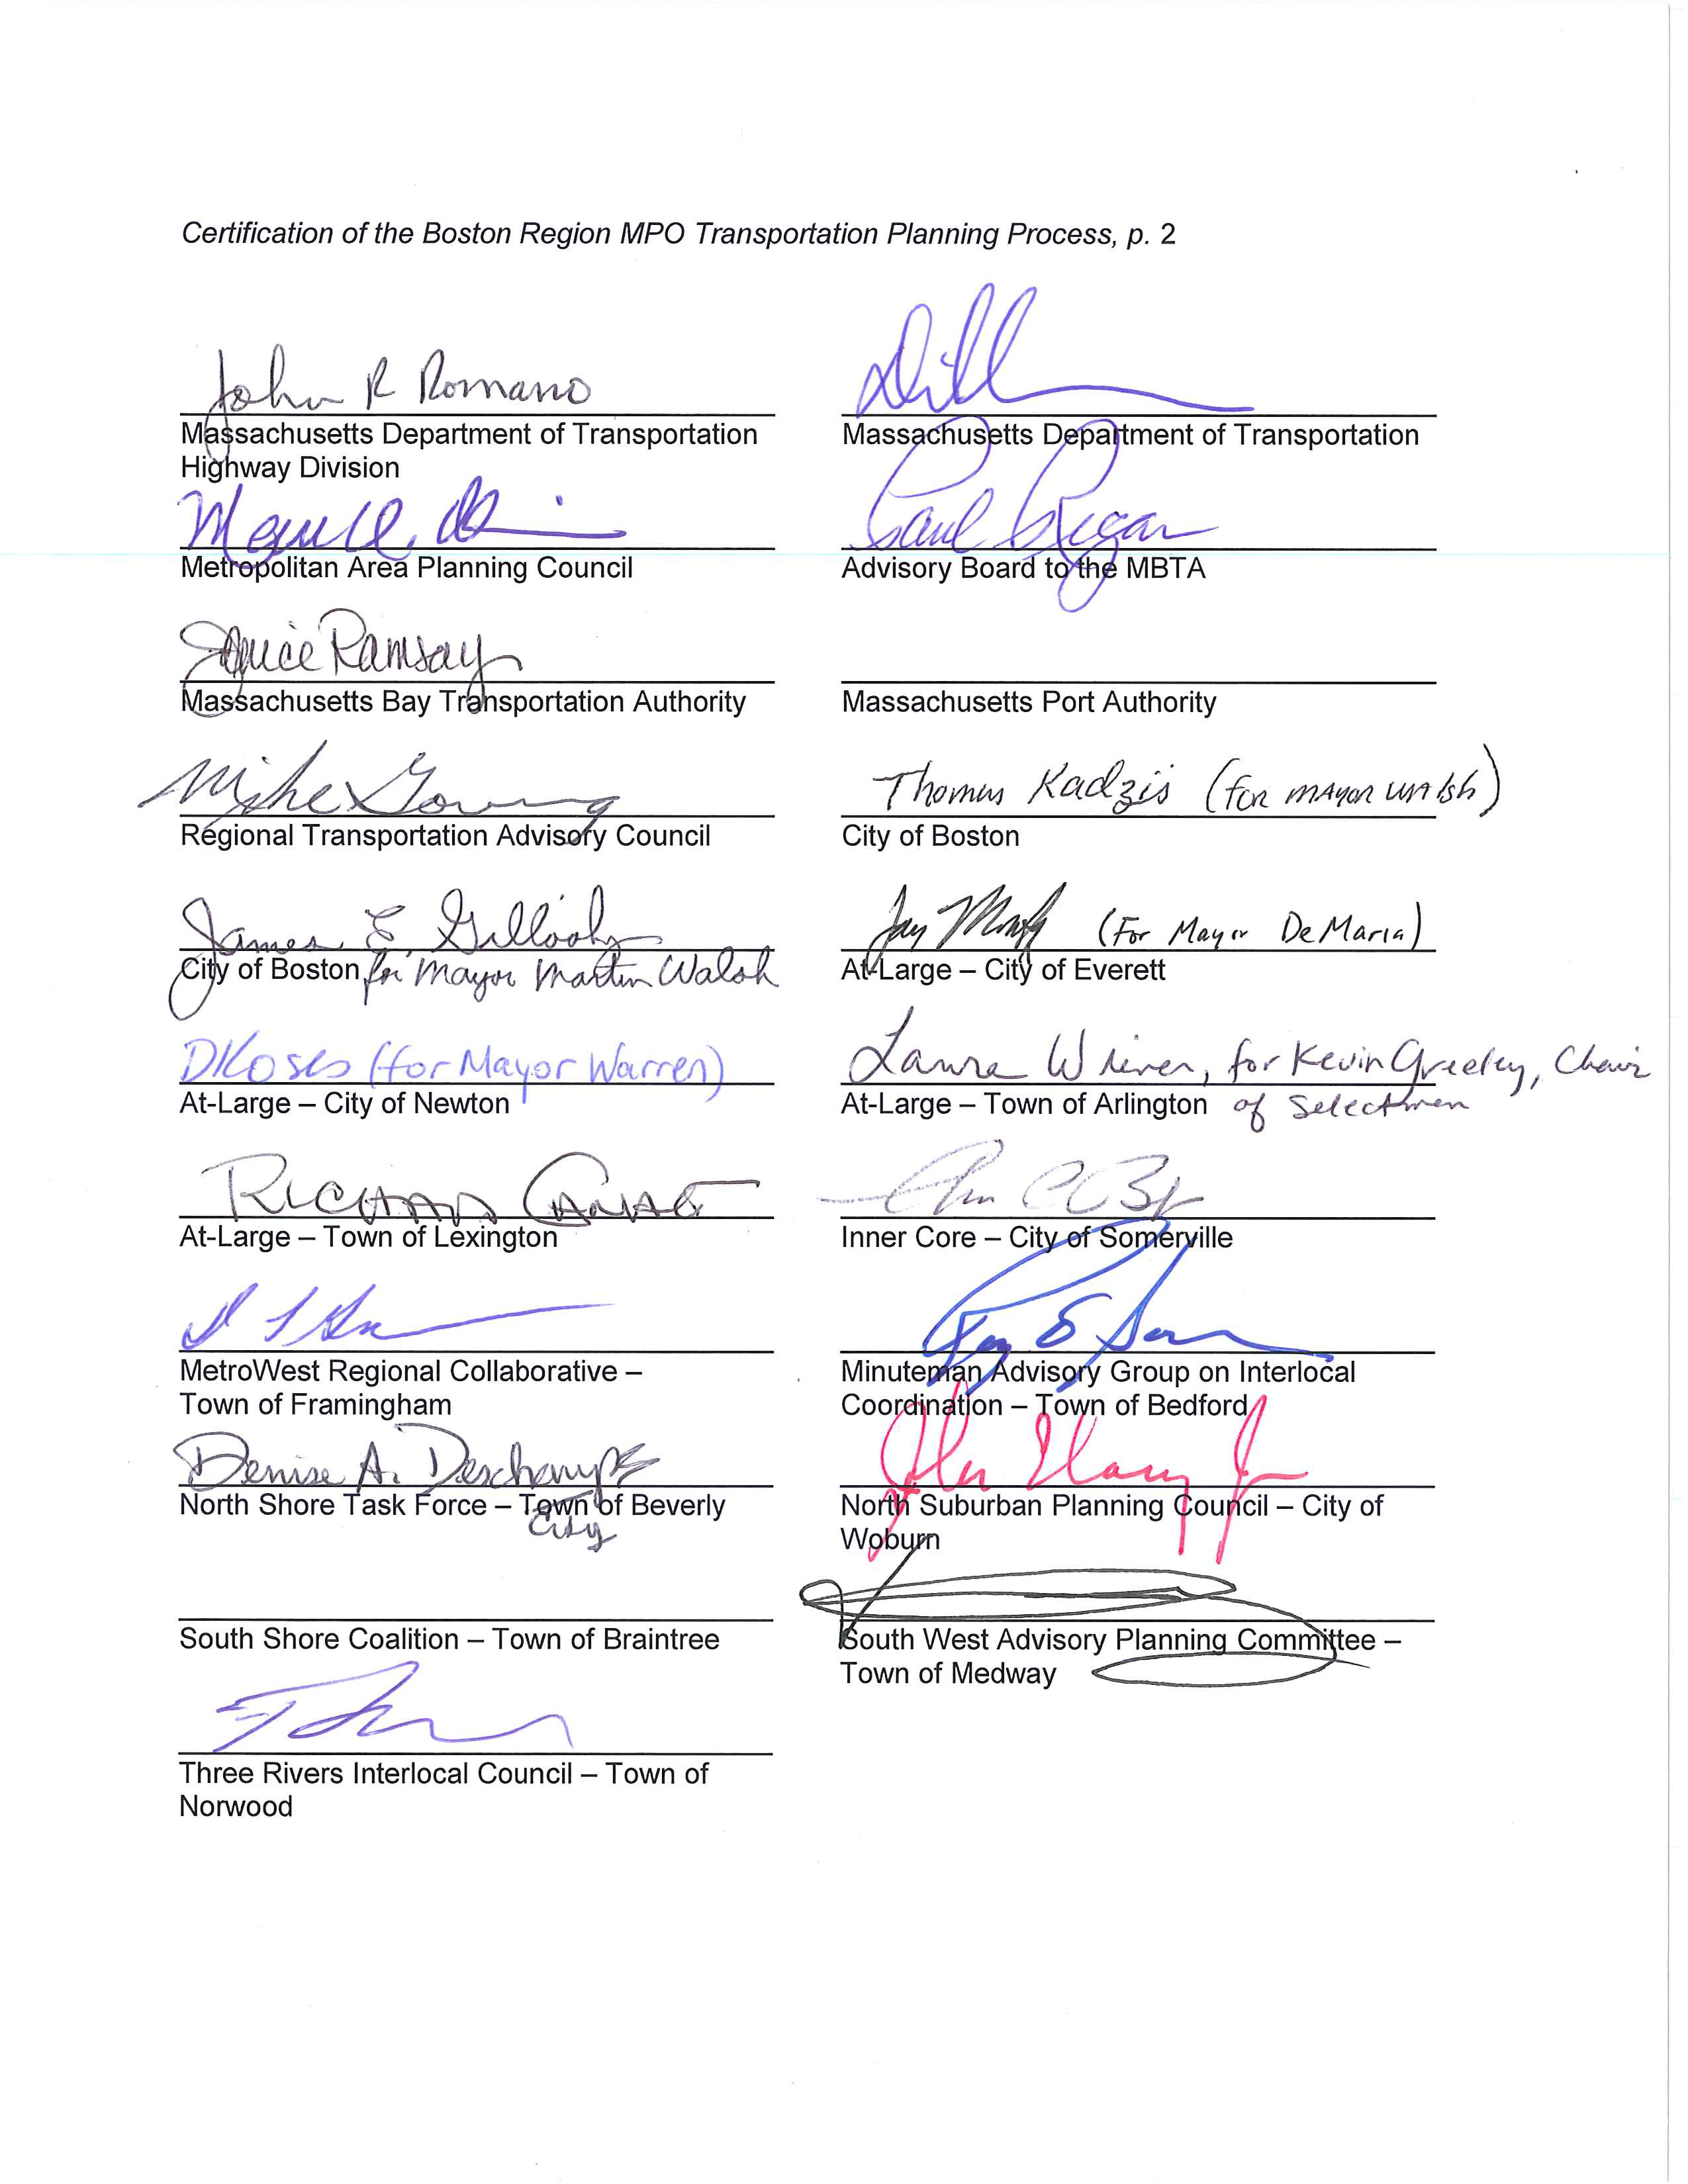 Certification of the Boston Region MPO Transportation Planning Process, p. 2
John R Romano
Massachusetts Department of Transportation
Highway Division
Massachusetts Department of Transportation
Metropolitan Area Planning Council
Paul Regan
Advisory Board to the MBTA
Janice Ramsay
Massachusetts Bay Transportation Authority
Massachusetts Port Authority
Mike Gowing
Regional Transportation Advisory Council
Thomas Kadzis (for mayor walsh)
City of Boston
James E. Gillooly
City of Boston for Mayor Martin Walsh
Jay (For Mayor DeMaria)
At-Large – City of Everett
DKoses (for Mayor Warren)
At-Large – City of Newton
Laura Wiener, for Kevin Greeley, Chair
At-Large – Town of Arlington of Selectmen
Richard Canale
At-Large – Town of Lexington
Inner Core – City of Somerville
MetroWest Regional Collaborative –
Town of Framingham
Minuteman Advisory Group on Interlocal
Coordination – Town of Bedford
Denise A. Deschamps
North Shore Task Force – Town of Beverly
City
North Suburban Planning Council – City of
Woburn
South Shore Coalition – Town of Braintree
South West Advisory Planning Committee –
Town of Medway
Three Rivers Interlocal Council – Town of
Norwood